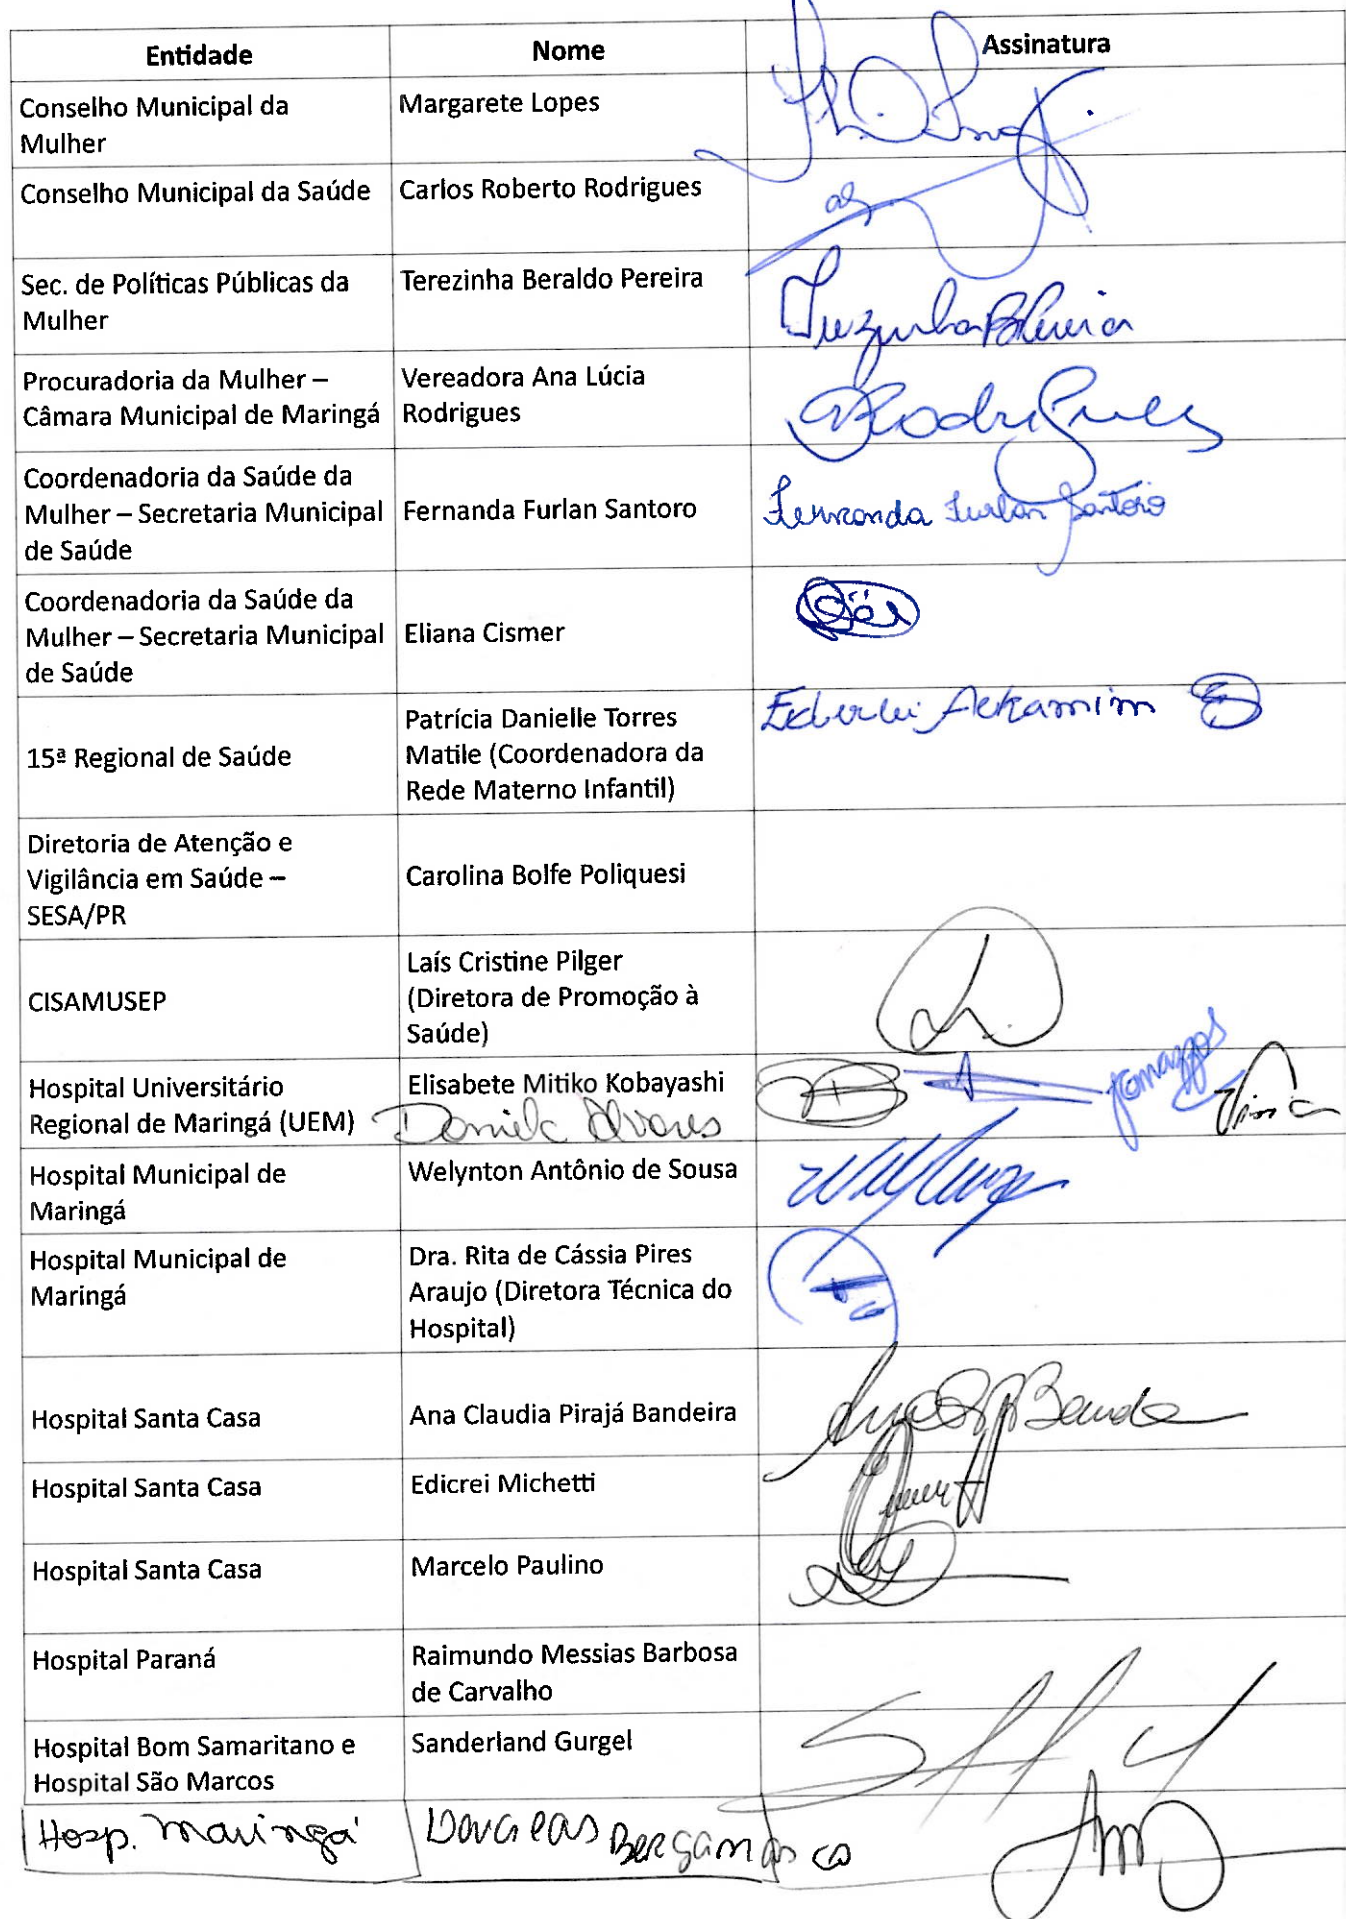 Entidade Nome Assinatura
Conselho Municipal da
Mulher
Margarete Lopes
Conselho Municipal da Saúde
Carlos Roberto Rodrigues
Sec. de Políticas Públicas da
Mulher
Terezinha Beraldo Pereira
Procuradoria da Mulher –
Câmara Municipal de Maringá
Vereadora Ana Lúcia
Rodrigues
Rodrigues
Coordenadoria da Saúde da
Mulher – Secretaria Municipal
de Saúde
Fernanda Furlan Santoro
Fernanda Furlan Santoro
Coordenadoria da Saúde da
Mulher – Secretaria Municipal
de Saúde
Eliana Cismer
15ª Regional de Saúde
Patrícia Danielle Torres
Matile (Coordenadora da
Rede Materno Infantil)
Diretoria de Atenção e
Vigilância em Saúde –
SESA/PR
Carolina Bolfe Poliquesi
CISAMUSEP
Laís Cristine Pilger
(Diretora de Promoção à
Saúde)
Hospital Universitário
Regional de Maringá (UEM)
Elisabete Mitiko Kobayashi
Daniela Alvares
Hospital Municipal de
Maringá
Welynton Antônio de Sousa
Hospital Municipal de
Maringá
Dra. Rita de Cássia Pires
Araujo (Diretora Técnica do
Hospital)
Hospital Santa Casa
Ana Claudia Pirajá Bandeira
Hospital Santa Casa
Edicrei Michetti
Hospital Santa Casa
Marcelo Paulino
Hospital Paraná
Raimundo Messias Barbosa
de Carvalho
Hospital Bom Samaritano e
Hospital São Marcos
Sanderland Gurgel
Hosp. Maringá
Douglas Bergamasco